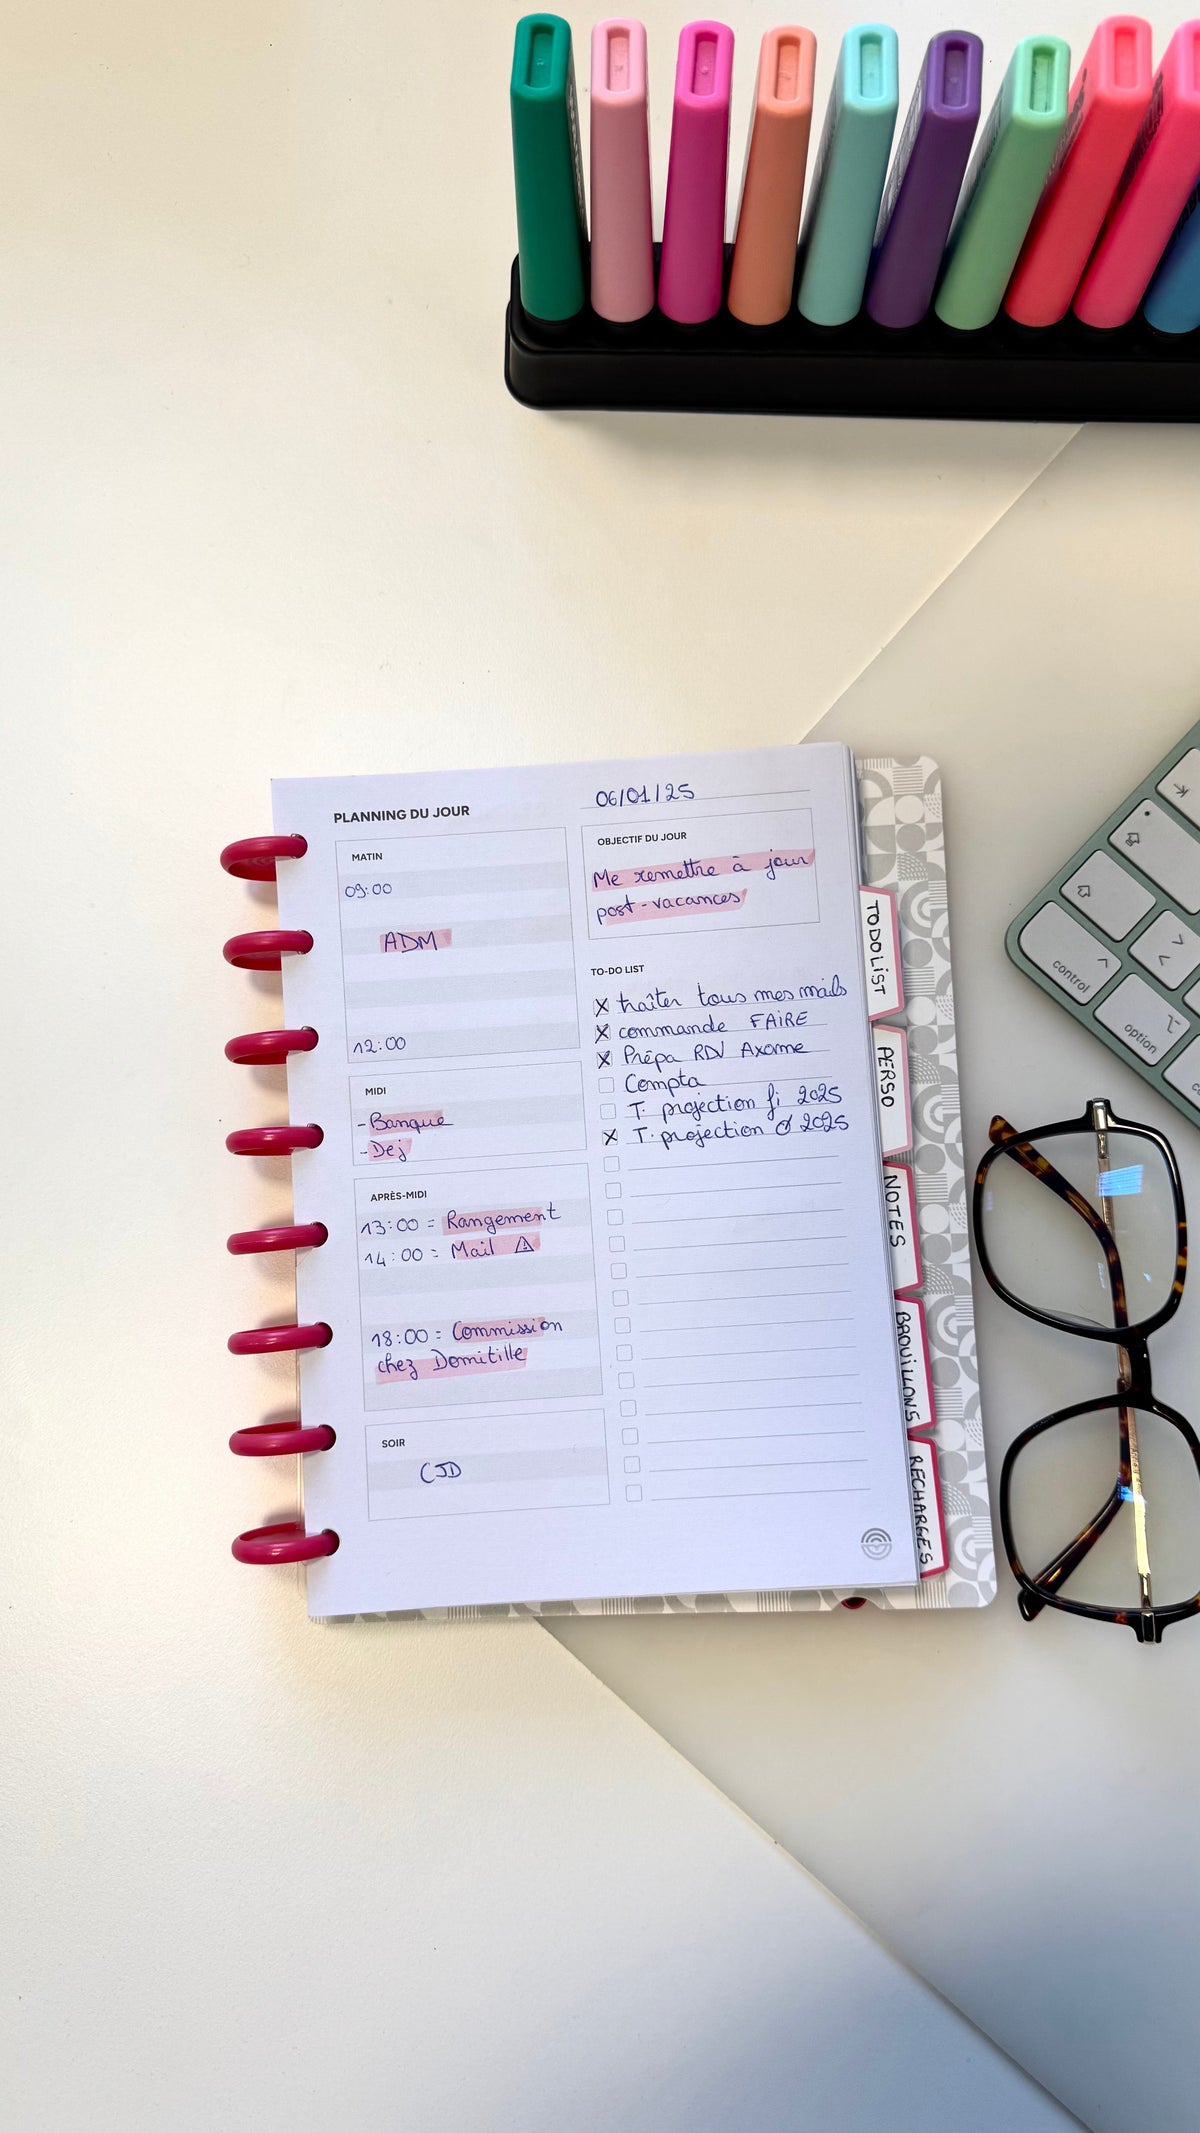 PLANNING DU JOUR
06/01/25
MATIN
09:00
ADM
12:00
MIDI
- Banque
- Dej
APRÈS-MIDI
13:00 = Rangement
14:00 = Mail
18:00 = Commission
chez Domitille
SOIR
CJD
OBJECTIF DU JOUR
Me remettre à jour
post-vacances
TO-DO LIST
traîter tous mes mails
commande FAIRE
Prépa RDV Axome
Compta
T. projection fi 2025
T. projection 2025
TO DO LIST
PERSO
NOTES
BROUILLONS
RECHARGES
control
option